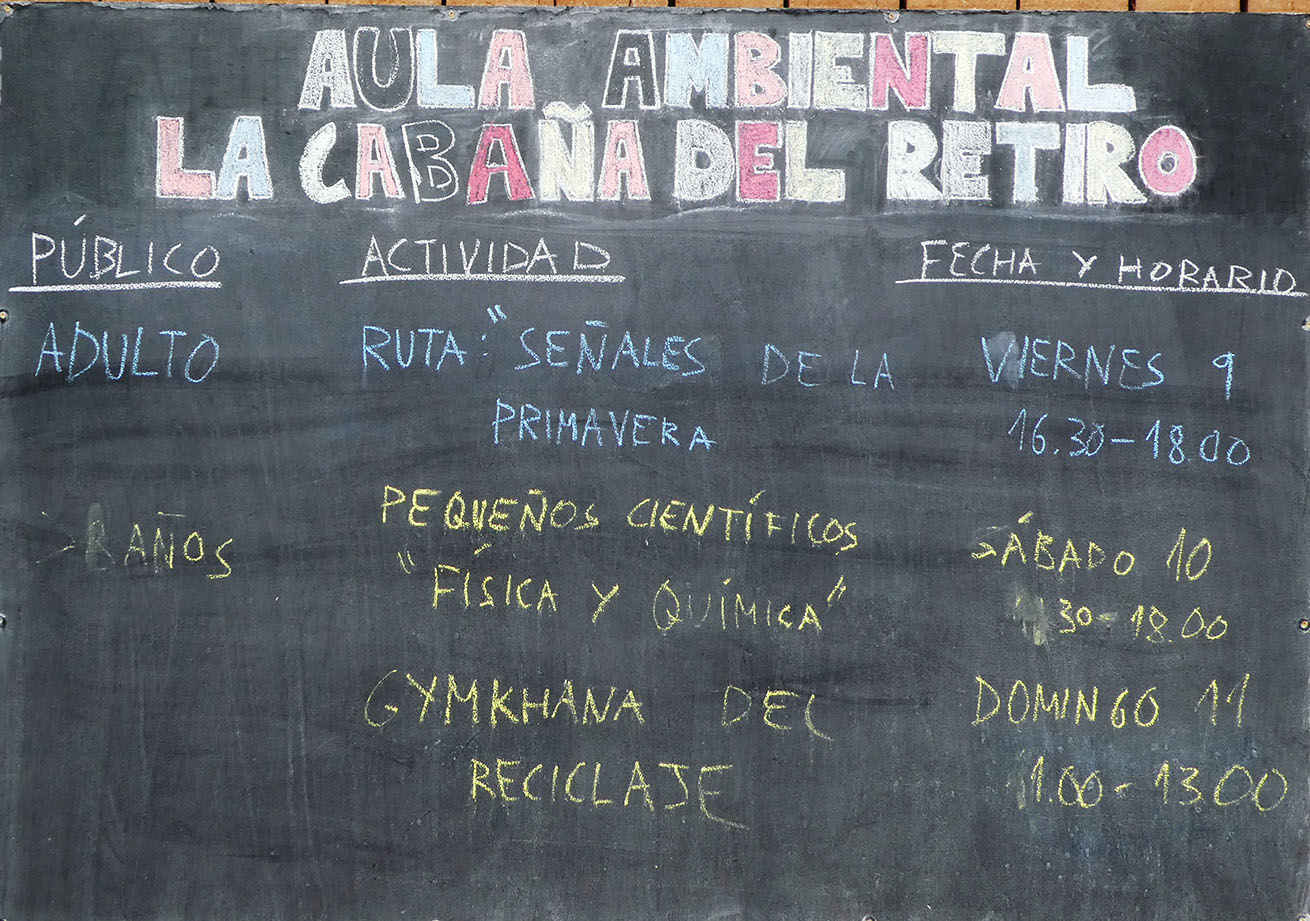 AULA AMBIENTAL
LA CABAÑA DEL RETIRO
PÚBLICO ACTIVIDAD FECHA Y HORARIO
ADULTO RUTA: "SEÑALES DE LA VIERNES 9
PRIMAVERA 16.30-18.00
PEQUEÑOS CIENTÍFICOS
> 8 AÑOS SÁBADO 10
"FÍSICA Y QUÍMICA" 30-18.00
GYMKHANA DEL DOMINGO 11
RECICLAJE 11.00-13.00